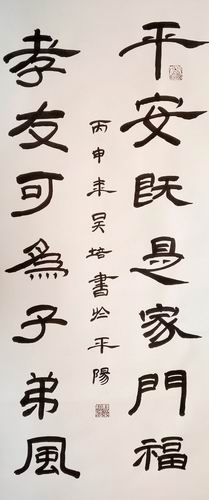 平安既是家門福
孝友可為子弟風
丙申年吴培書於平陽